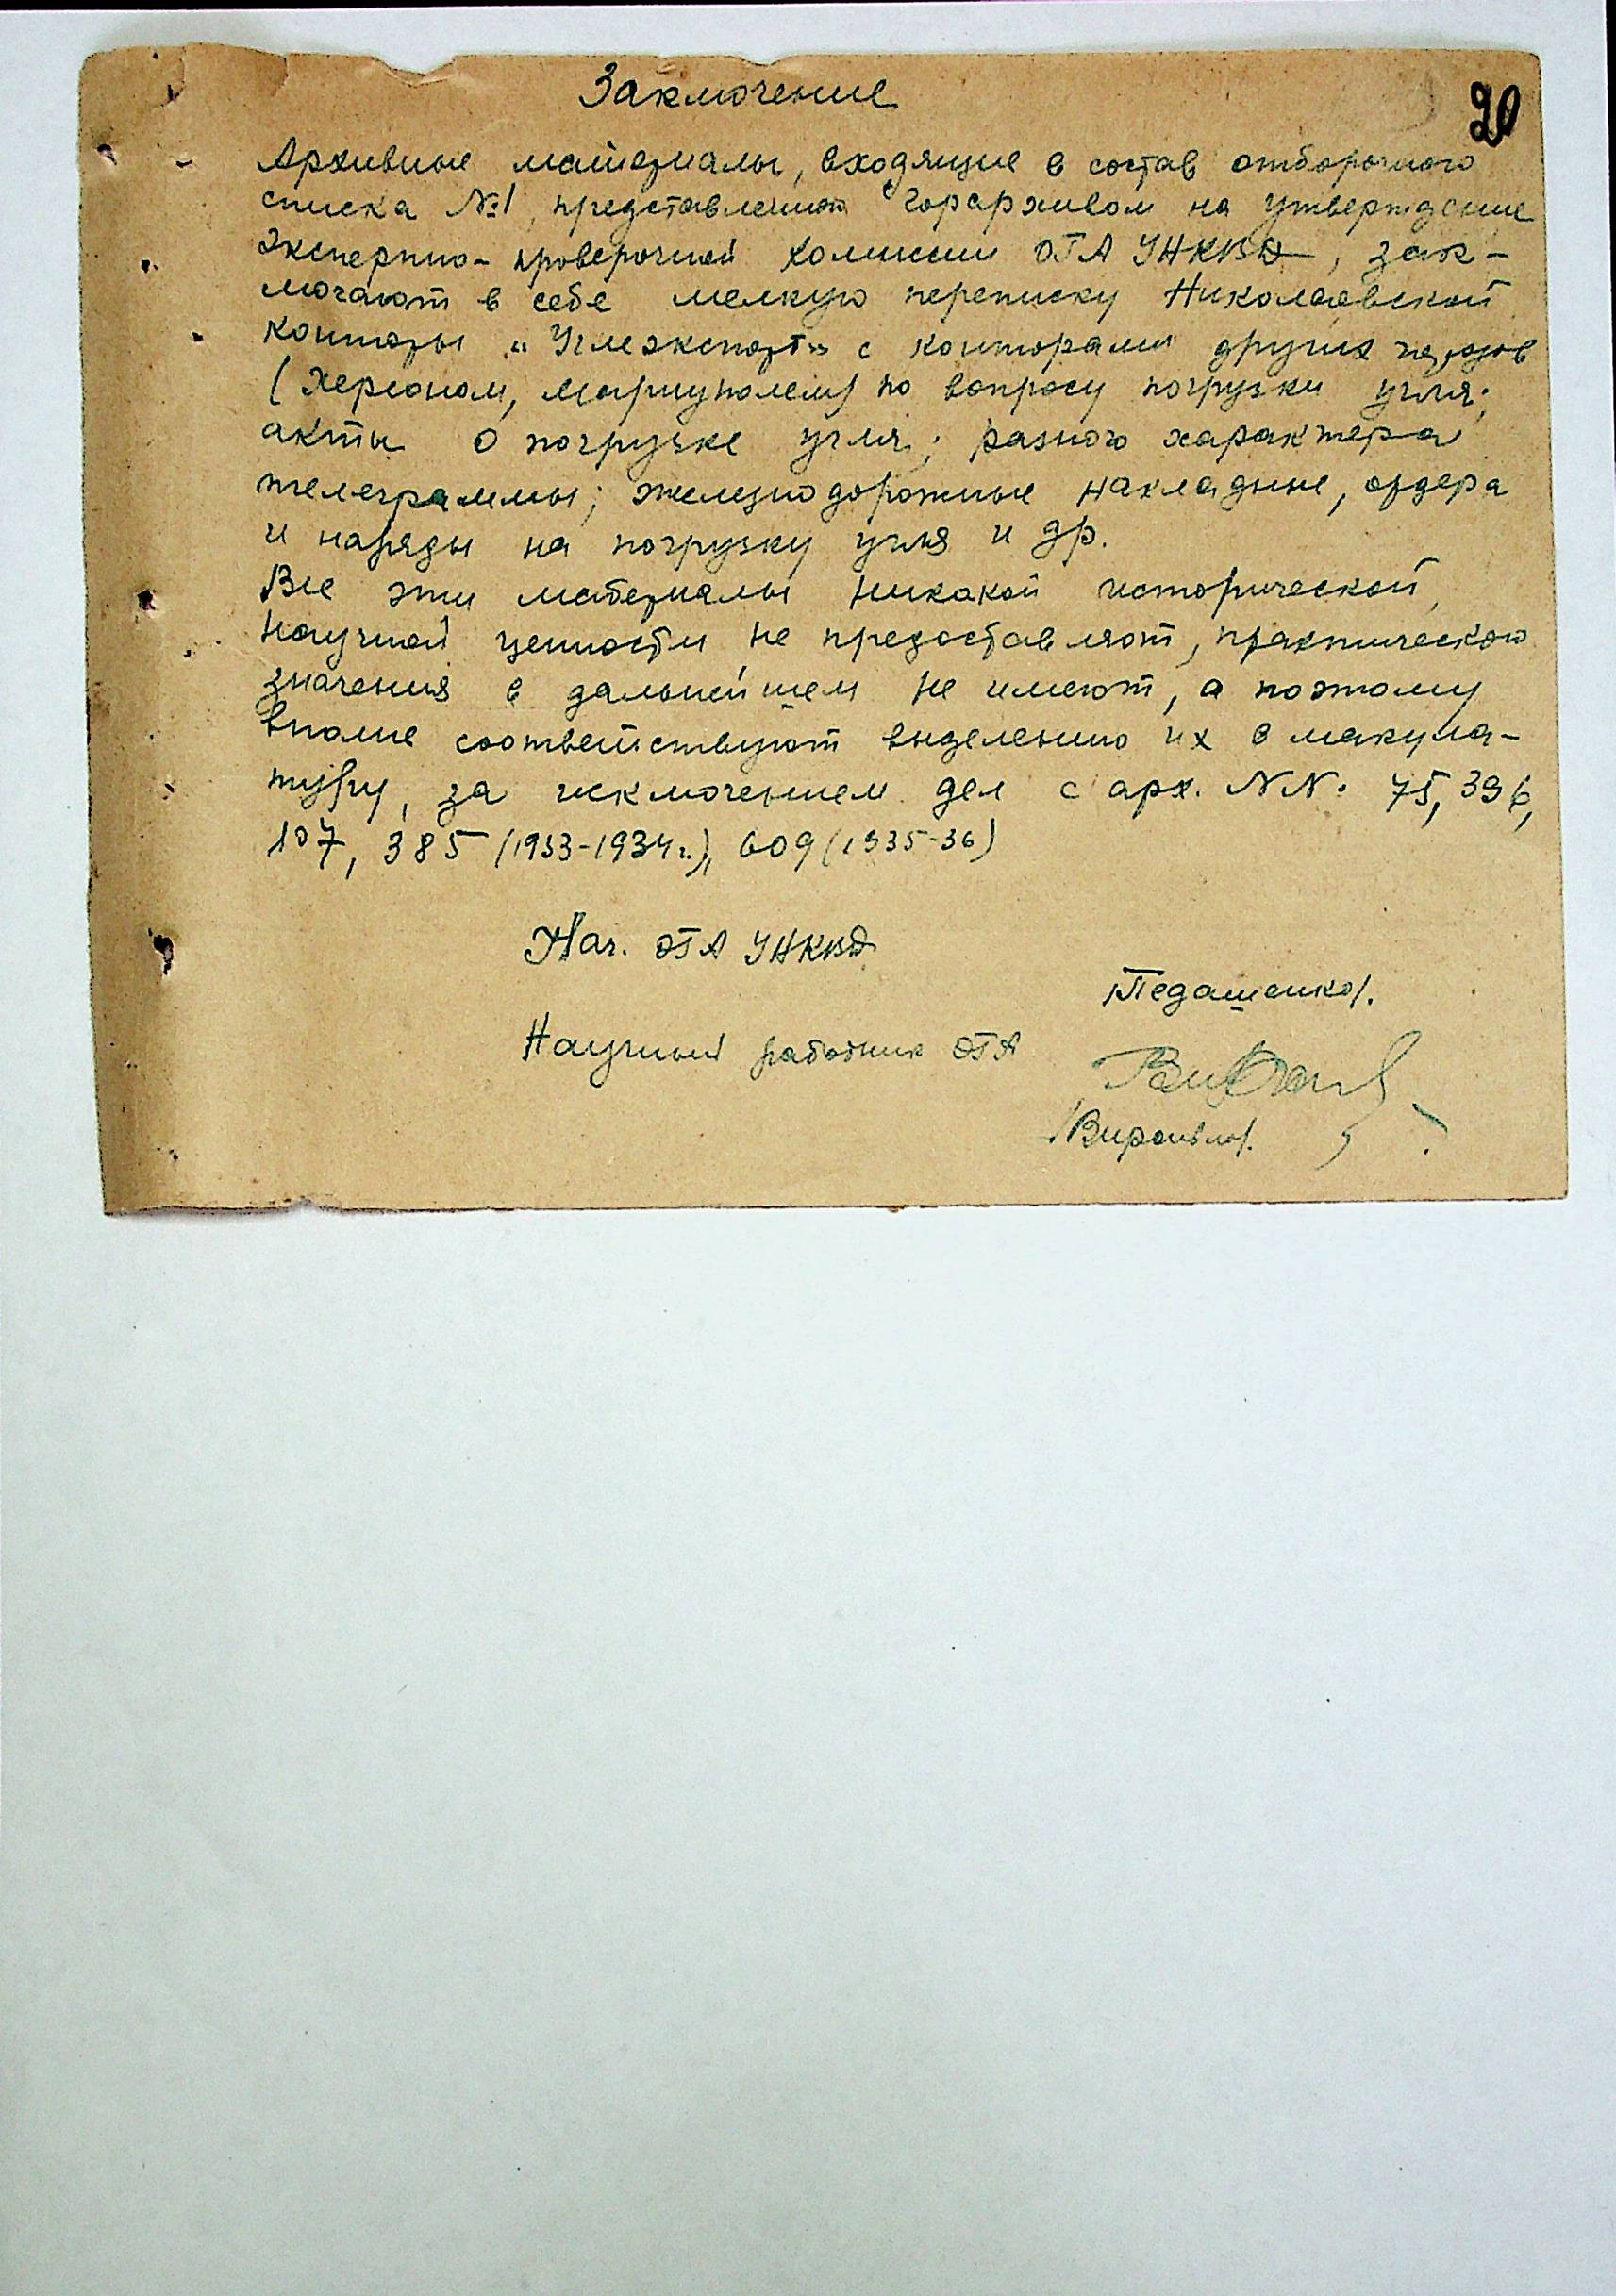 Заключение
20
Архивные материалы, входящие в состав отборочного
списка №1, представленного Горархивом на утверждение
Экспертно-проверочной Комиссии ОГА УНКВД, зак-
лючают в себе мелкую переписку Николаевской
конторы „Углеэкспорт" с конторами других городов
(Херсоном, Мариуполем) по вопросу погрузки угля;
акты о погрузке угля; разного характера
телеграммы; железнодорожные накладные, ордера
и наряды на погрузку угля и др.
Все эти материалы никакой исторической,
научной ценности не предоставляют, практического
значения в дальнейшем не имеют, а поэтому
вполне соответствуют выделению их в макула-
туру, за исключением дел с арх. NN. 75, 396,
107, 385 (1933-1934г.), 609 (1935-36)
Нач. ОГА УНКВД
/Педашенко/.
Научный работник ОГА